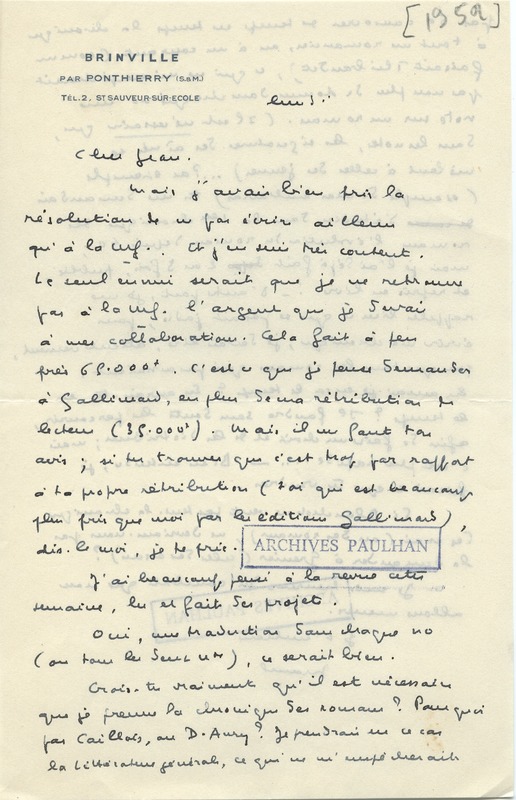 [1952]
BRINVILLE
PAR PONTHIERRY (S.&M.)
TÉL. 2, ST SAUVEUR-SUR-ECOLE
lundi
Cher Jean.
Mais j'avais bien pris la
résolution de n pas écrire ailleurs
qu'à la nrf. Et j'en suis très content.
Le seul ennui serait que je ne retrouve
pas à la nrf. l'argent que je devrai
à mes collaboration. Cela fait à peu
près 65.000f. C'est ce que je pense demander
à Gallimard, en plus de ma rétribution de
lecteur (35.000f). Mais il me faut ton
avis ; si tu trouves que c'est trop, par rapport
à ta propre rétribution (toi qui est beaucoup
plus pris que moi par les éditions Gallimard),
dis-le moi, je te prie.
ARCHIVES PAULHAN
J'ai beaucoup pensé à la revue cette
semaine, lu et fait des projets.
Oui, une traduction dans chaque no
(ou tous les deux nos), ce serait bien.
Crois-tu vraiment qu'il est nécessaire
que je prenne la chronique des romans ? Pourquoi
pas Caillois, ou D. Aury ? Je prendrais en ce cas
la littérature générale, ce qui ne m'empêcherait